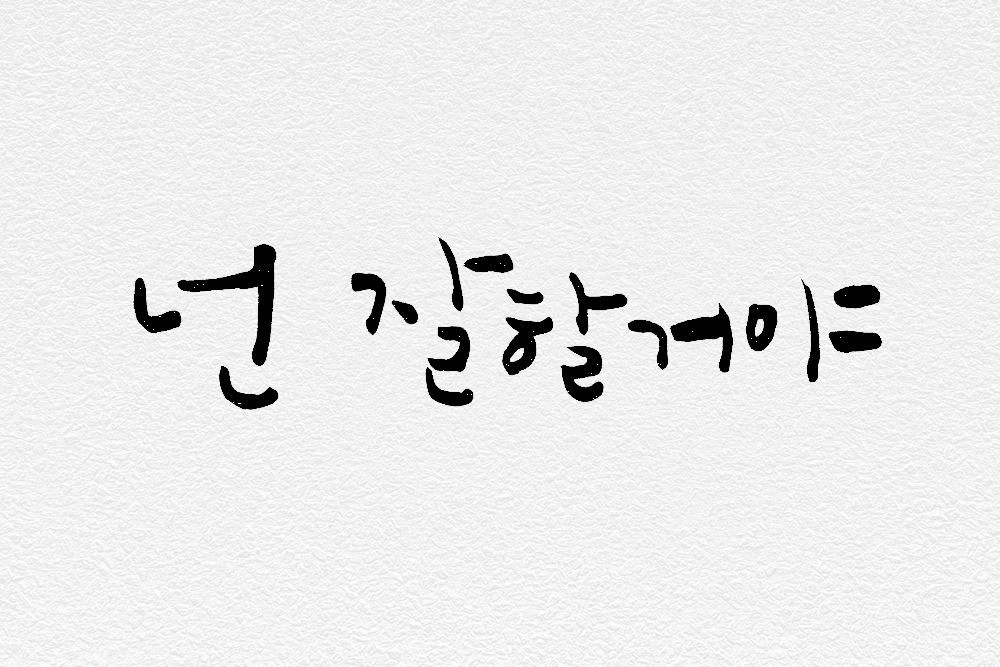 넌 잘할거야